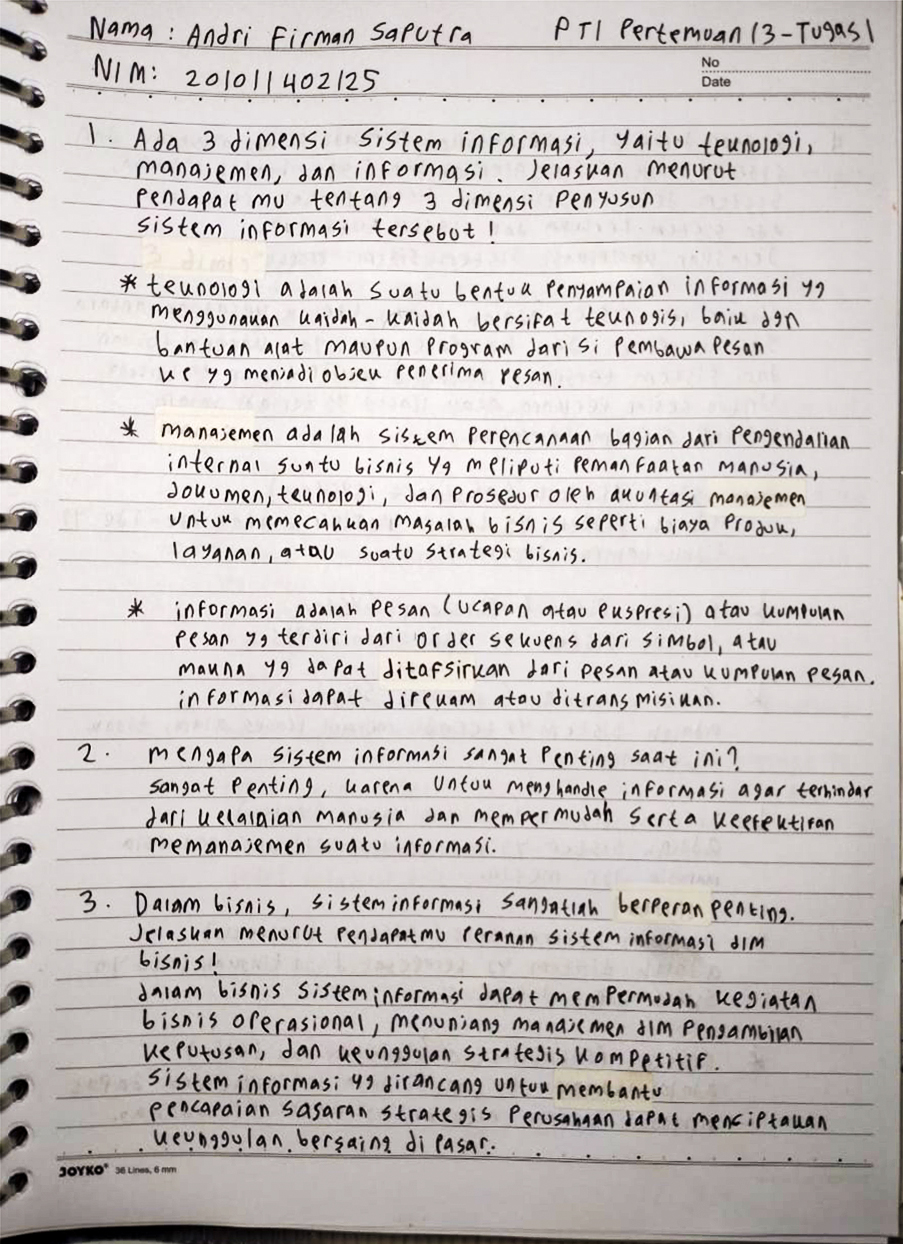 Nama : Andri Firman Saputra PTI Pertemuan 13 - Tugas 1
NIM: 201011402125
No
Date
1. Ada 3 dimensi sistem informasi, yaitu teknologi,
manajemen, dan informasi. Jelaskan menurut
pendapat mu tentang 3 dimensi penyusun
sistem informasi tersebut!
* teknologi adalah suatu bentuk penyampaian informasi yg
menggunakan kaidah - kaidah bersifat teknogis, baik dgn
bantuan alat maupun program dari si pembawa pesan
ke yg menjadi objek penerima pesan.
* manajemen adalah sistem perencanaan bagian dari pengendalian
internal suatu bisnis yg meliputi pemanfaatan manusia,
dokumen, teknologi, dan prosedur oleh akuntasi manajemen
untuk memecahkan masalah bisnis seperti biaya produk,
layanan, atau suatu strategi bisnis.
* informasi adalah pesan (ucapan atau ekspresi) atau kumpulan
pesan yg terdiri dari order sekuens dari simbol, atau
makna yg dapat ditafsirkan dari pesan atau kumpulan pesan.
informasi dapat direkam atau ditransmisikan.
2. mengapa sistem informasi sangat penting saat ini?
sangat penting, karena untuk menghandle informasi agar terhindar
dari kelalaian manusia dan mempermudah serta keefektifan
memanajemen suatu informasi.
3. Dalam bisnis, sistem informasi sangatlah berperan penting.
Jelaskan menurut pendapatmu peranan sistem informasi dlm
bisnis!
dalam bisnis sistem informasi dapat mempermudah kegiatan
bisnis operasional, menunjang manajemen dlm pengambilan
keputusan, dan keunggulan strategis kompetitif.
sistem informasi yg dirancang untuk membantu
pencapaian sasaran strategis perusahaan dapat menciptakan
keunggulan bersaing di pasar.
JOYKO 36 Lines, 6 mm